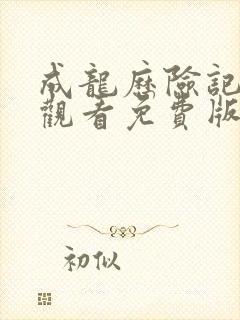 成龍歷險記
觀看免費版
初似